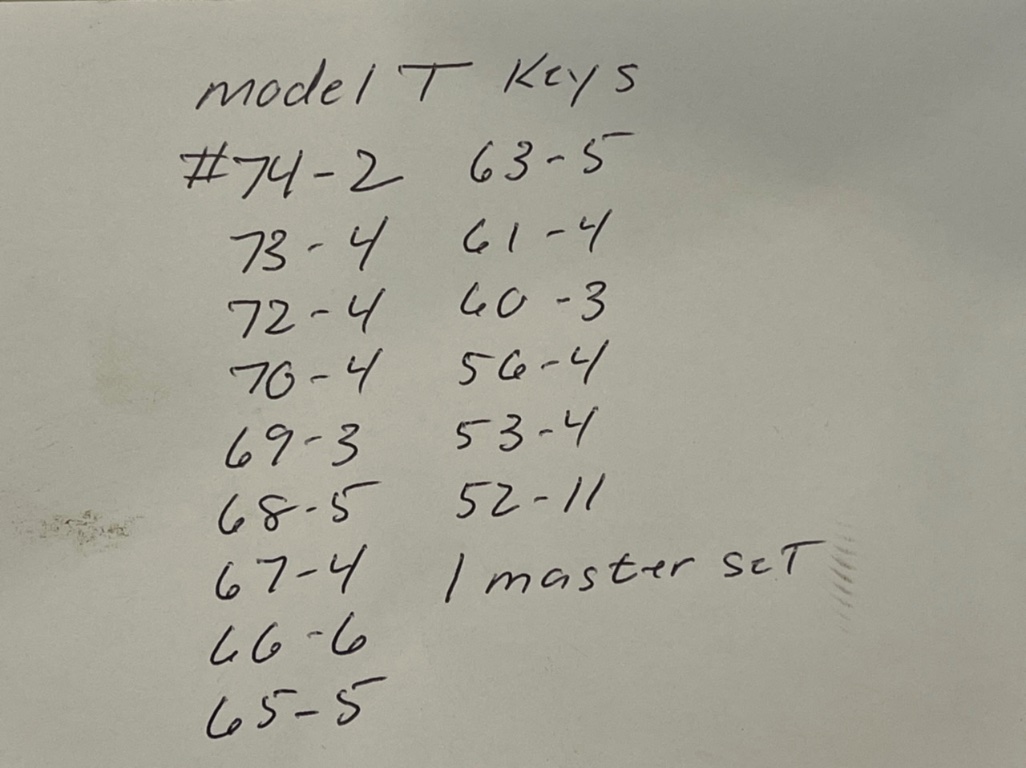 model T Keys
#74-2
73-4
72-4
70-4
69-3
68-5
67-4
66-6
65-5
63-5
61-4
60-3
56-4
53-4
52-11
1 master seT